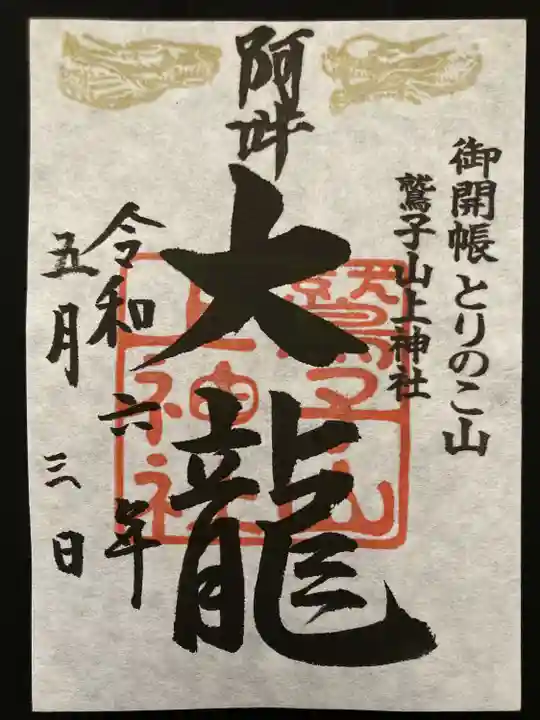 御開帳とりのこ山
鷲子山上神社
阿吽
大龍
令和六年
五月三日
鷲子山
上神社